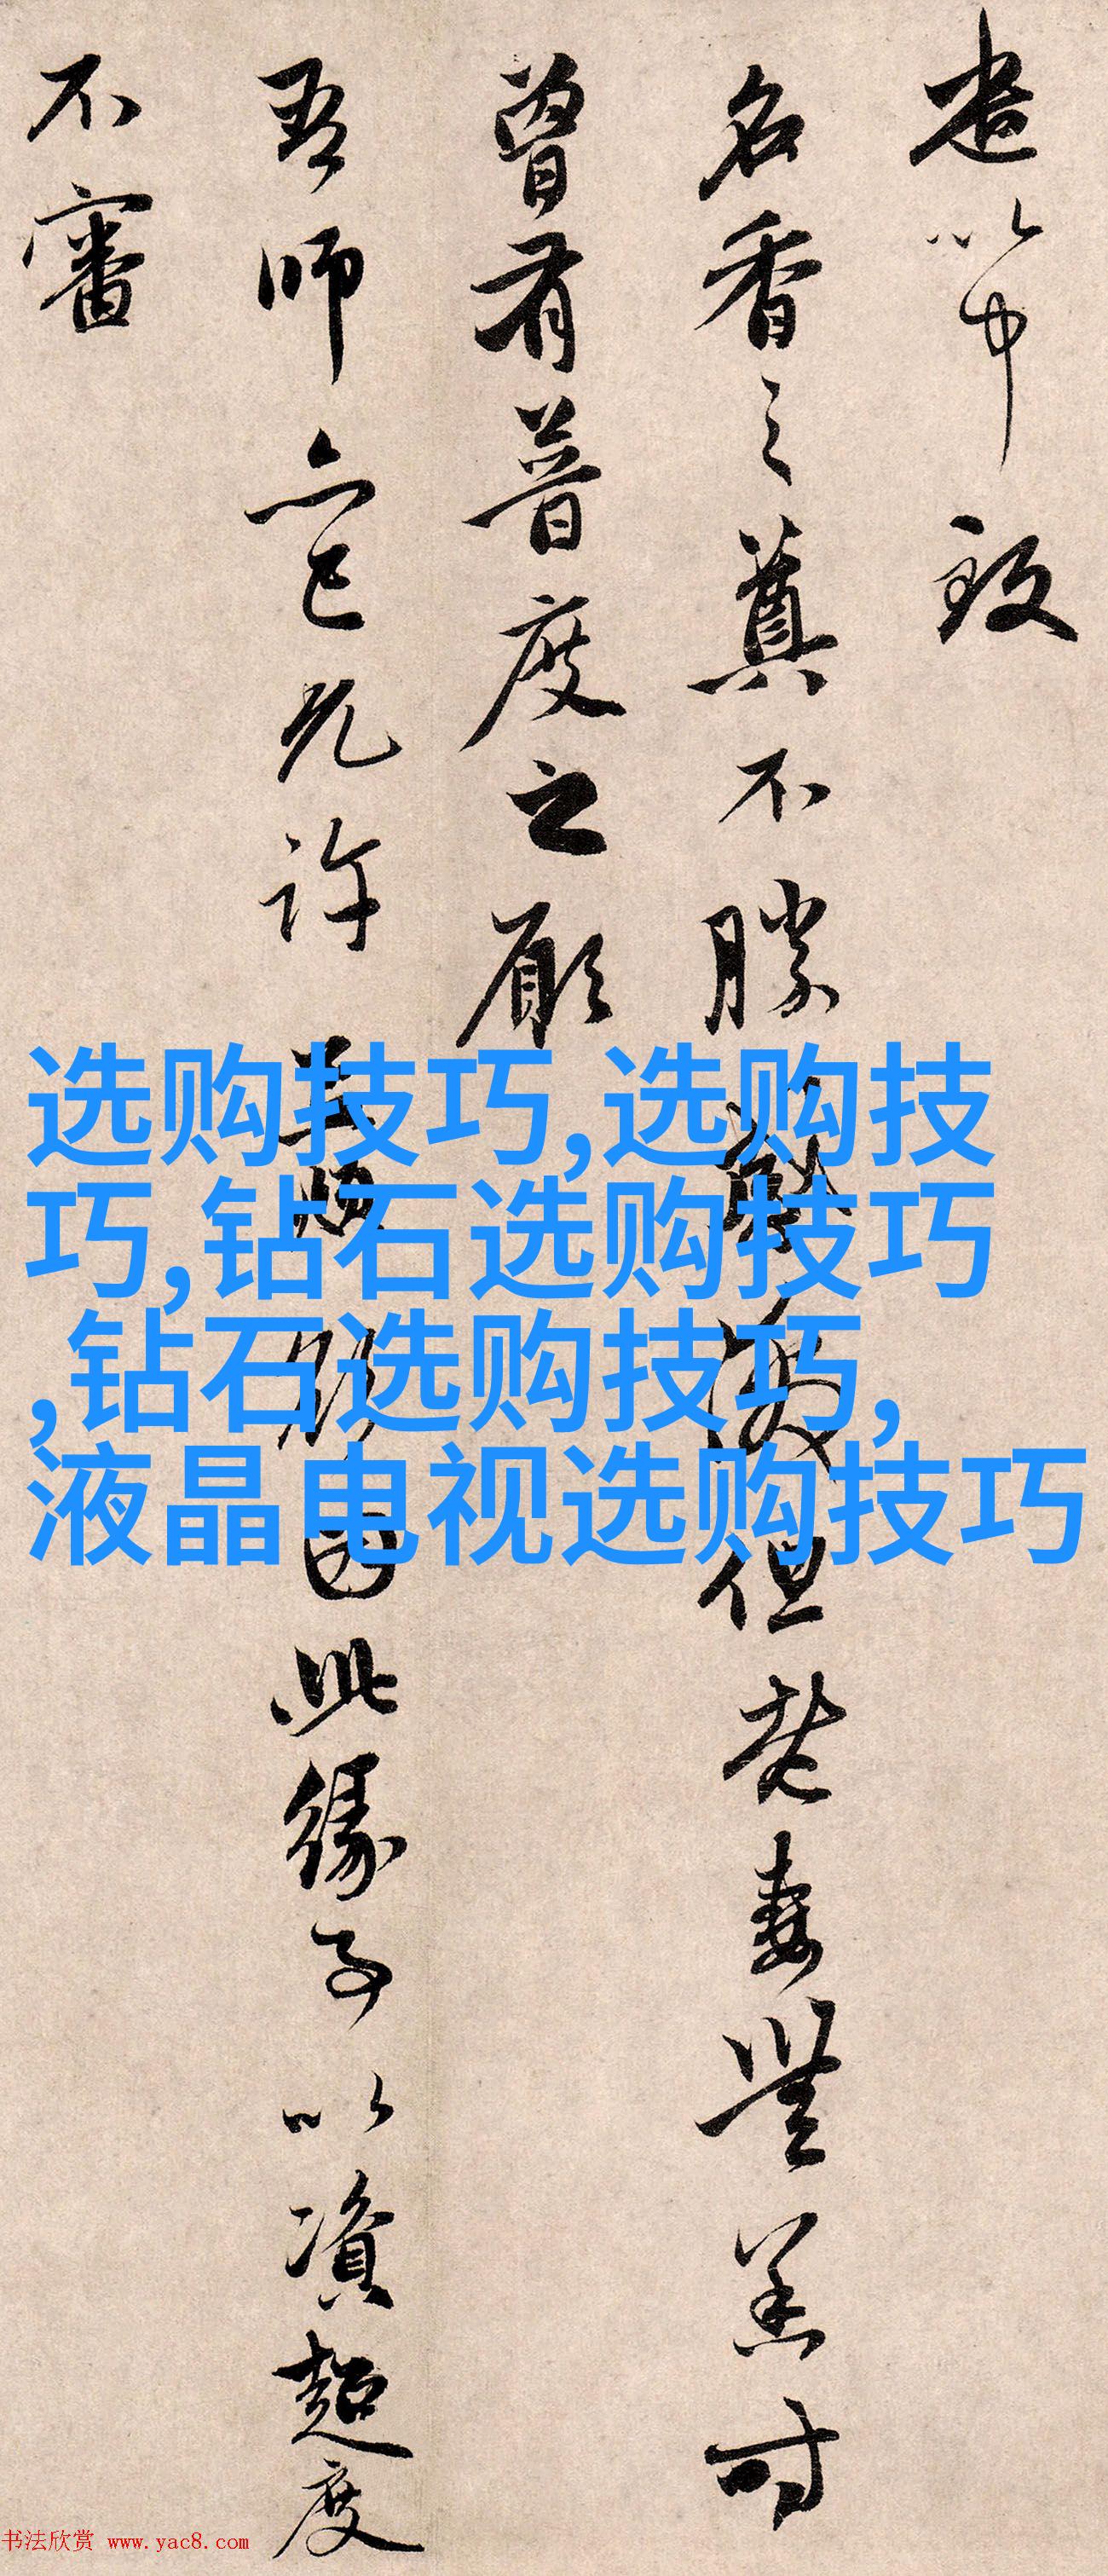 遣以中致
名香之奠不勝
但焚妻輩羔時
曾有普度之願
吾師亦已允許
因此緣子以資超度
不審
选购技巧,选购技
巧,钻石选购技巧
,钻石选购技巧,
液晶电视选购技巧
书法欣赏 www.yac8.com